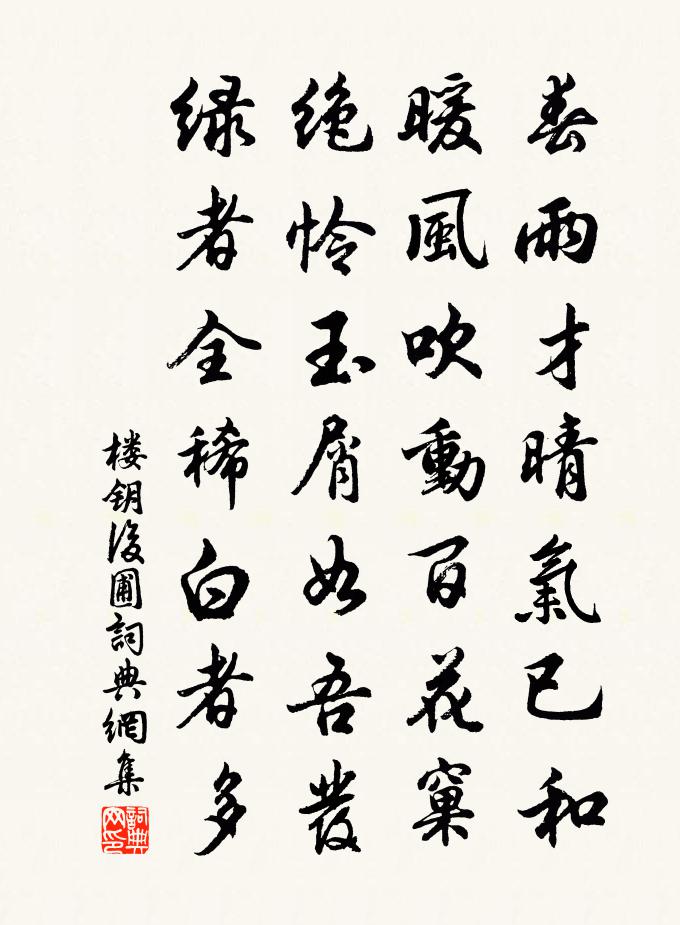 春雨才晴氣已和
暖風吹動百花窠
绝怜玉屑如吾髮
绿者全稀白者多
楼钥後圃詞典網集
詞典网印